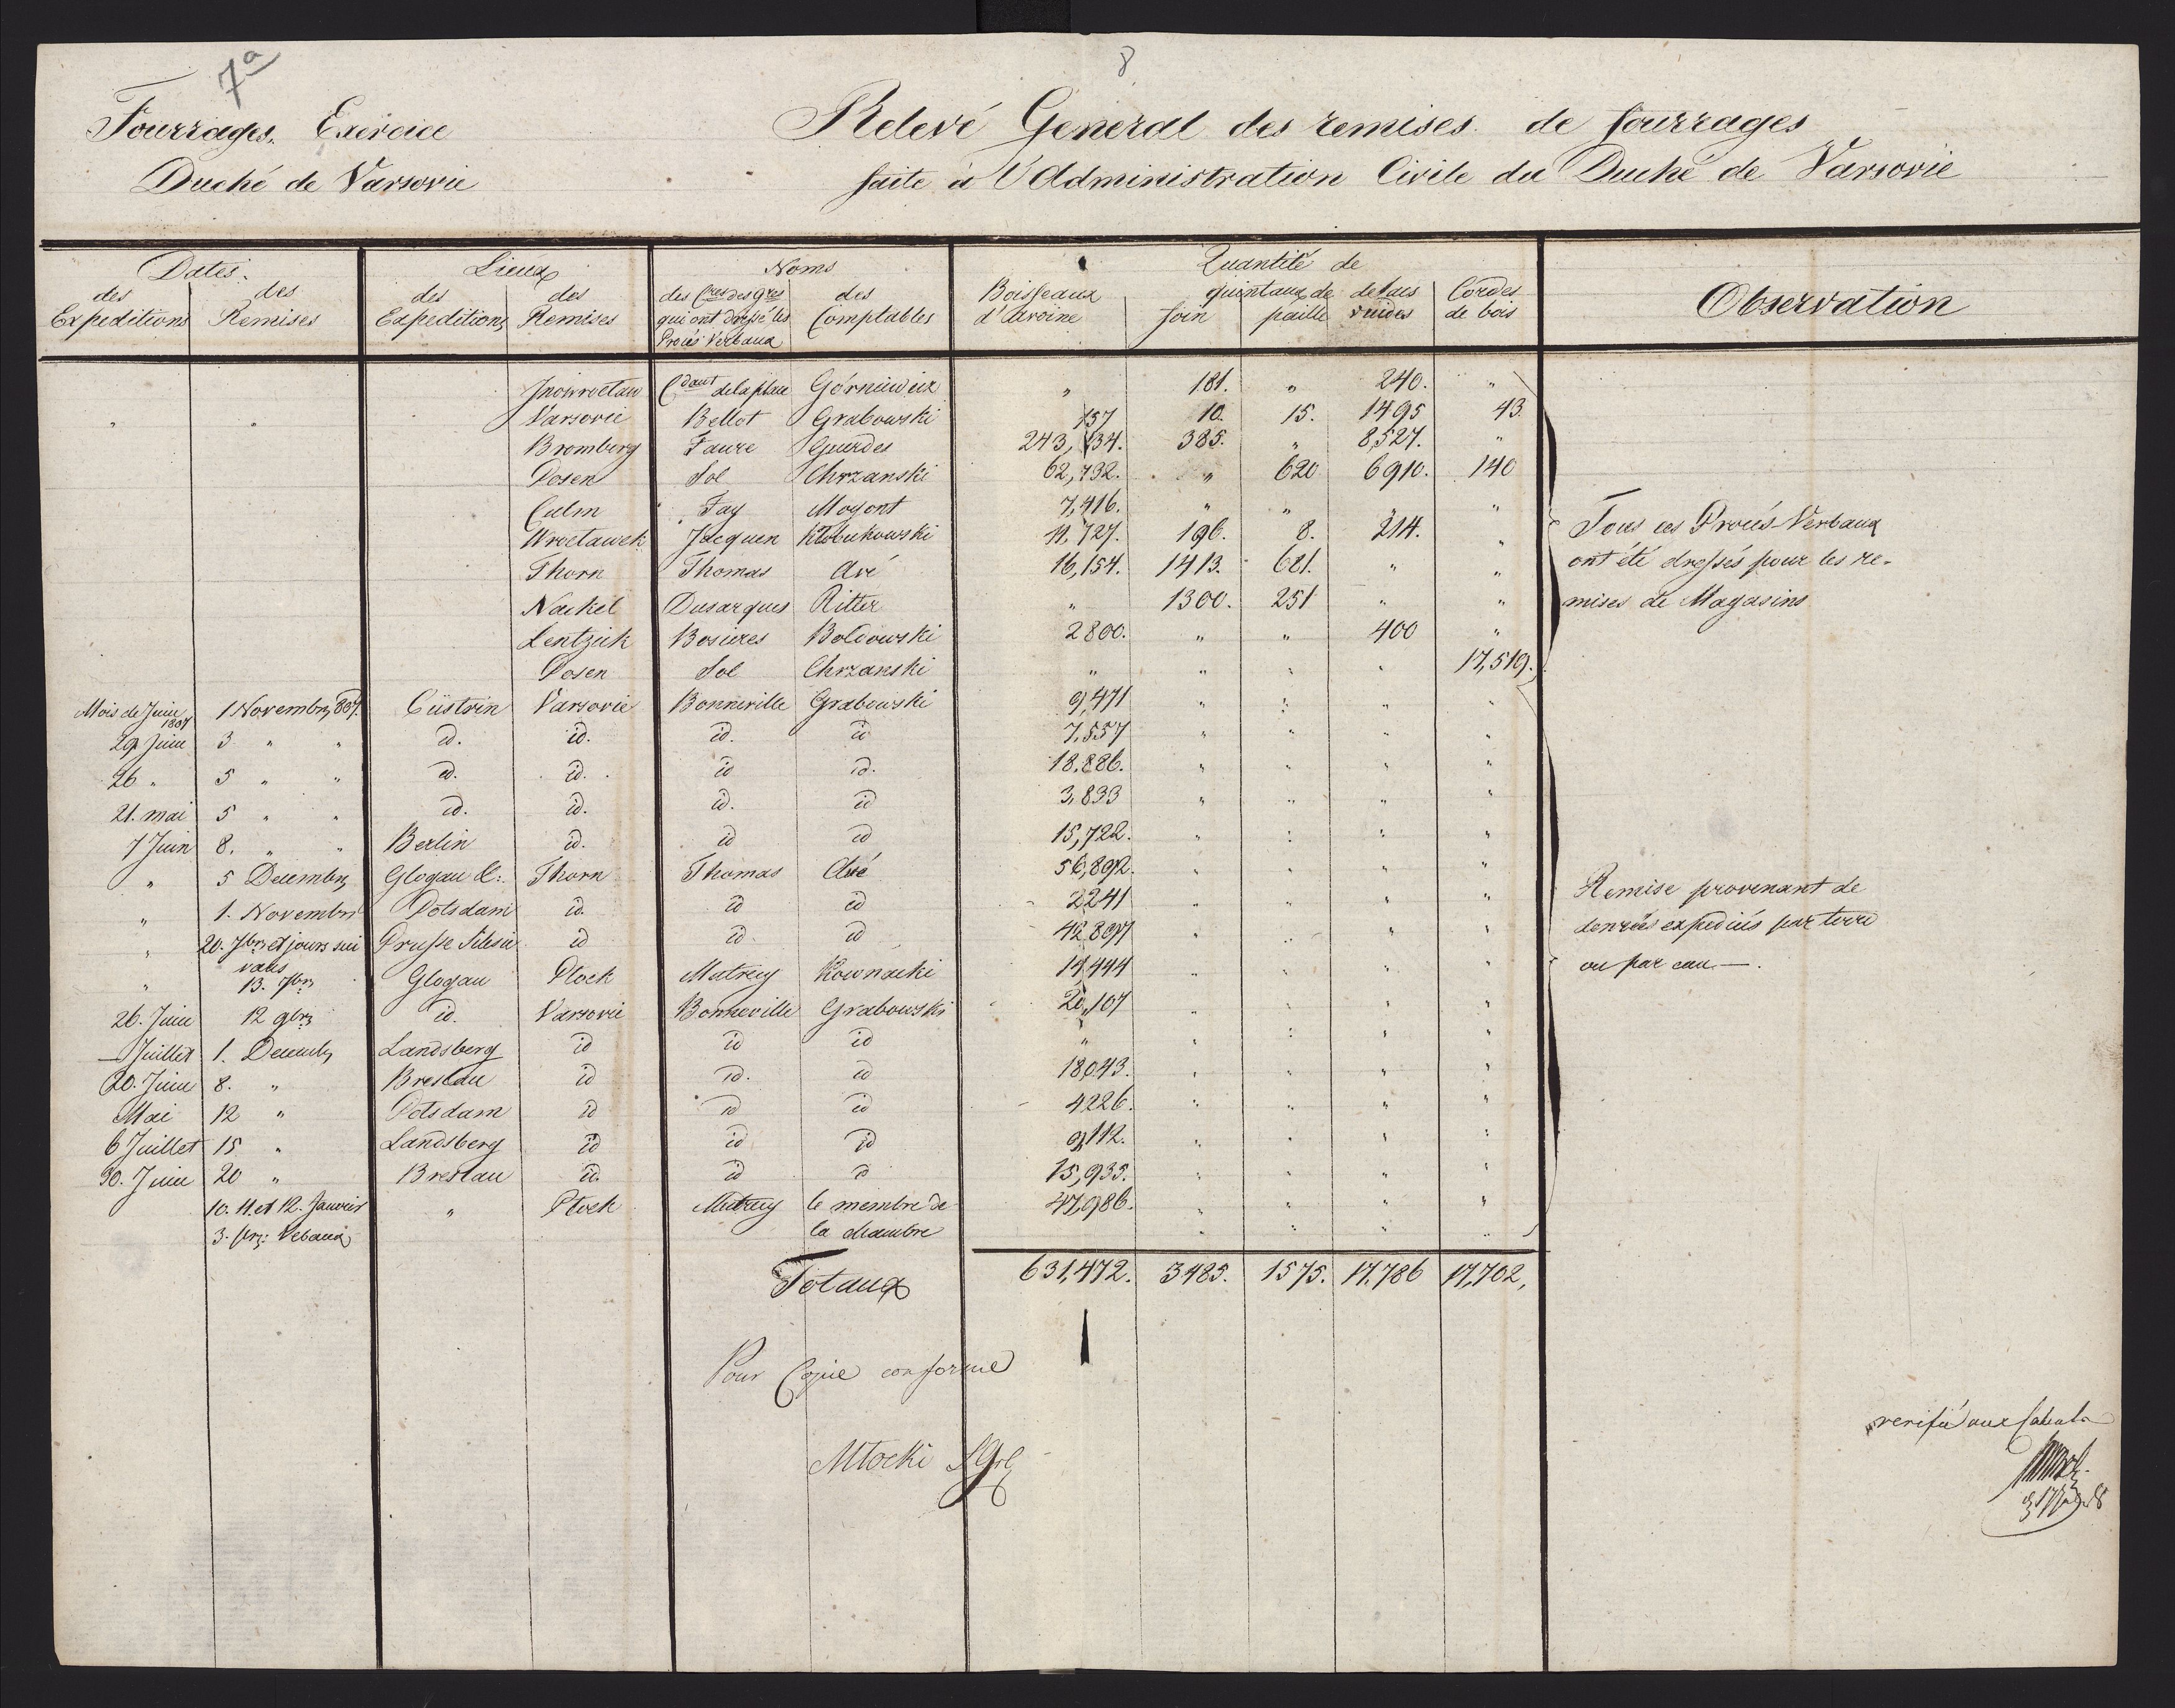 7a
8
Fourrages. Exercice
Duché de Varsovie
Relevé General des remises de fourrages
faite à l'Administration Civile du Duché de Varsovie
Dates. Lieux Noms Quantité de
des Expeditions des Remises des Expeditions des Remises des Cres des gres qui ont dressé les Procès Verbaux des Comptables Boisseaux d'Avoine quintaux de foin paille de sacs vuides Cordes de bois Observation
Inowroclaw Cdant de la place " 181. " 240. "
" " Varsovie Bellot Grabowski 157 10. 15. 1495 43
Bromberg Faure Guedes 243,134. 385. " 8,527. "
Posen Sol Chrzanski 62,732. " 620 6910. 140
Culm Fay Moyont 7,416. " " " "
Wroclawek Jacquen Klobukowski 11,727. 196. 8. 214. "
Thorn Thomas Avé 16,154. 1413. 681. " "
Nackel Dusarques Ritter " 1300. 251 " "
Lentzich Bosieres Bolcowski 2800. " " 400 "
Posen Sol Chrzanski " " " " 17,519.
Tous ces Procès Verbaux
ont été dressés pour les re-
mises de Magasins
Mois de Juin 1807 1 Novembre 807. Cüstrin Varsovie Bonneville Grabowski 9,471 " " " "
29 Juin 3 " " id. id. id. id 7,557 " " " "
26 " 5 " " id. id. id id. 18.886. " " " "
21. mai 5 " " id. id. id. id 3,833 " " " "
7 Juin 8. " " Berlin id. id id 15,722. " " " "
" 5 Decembre Glogau &: Thorn Thomas Avé 56,892. " " " "
" 1. Novembre Potsdam id. id id 2241 " " " "
" 20. 7bre et jours sui vans Prusse Silesie id id id 42,897 " " " "
" 13. 7bre Glogau Plock Mutrecy Kownacki 14,444 " " " "
26. Juin 12 9bre id. Varsovie Bonneville Grabowski 20,107 " " " "
Juillet 1. Decembre Landsberg id id id " " " " "
20. Juin 8. " Breslau id id. id 18,043. " " " "
Mai 12 " Potsdam id id id 4226. " " " "
6 Juillet 15 " Landsberg id id id 9,112. " " " "
30. Juin 20 " Breslau id. id id 15,935. " " " "
10. 11. et 12. Janvier " Plock Mutrecy le membre de 47,986. " " " "
3. Verbaux la chambre " " " "
Remise provenant de
denrées expediées par terre
ou par eau.—.
Totaux 631,472. 3485. 1575. 17.786 17,702,
Pour Copie conforme
Mlocki
verifié aux